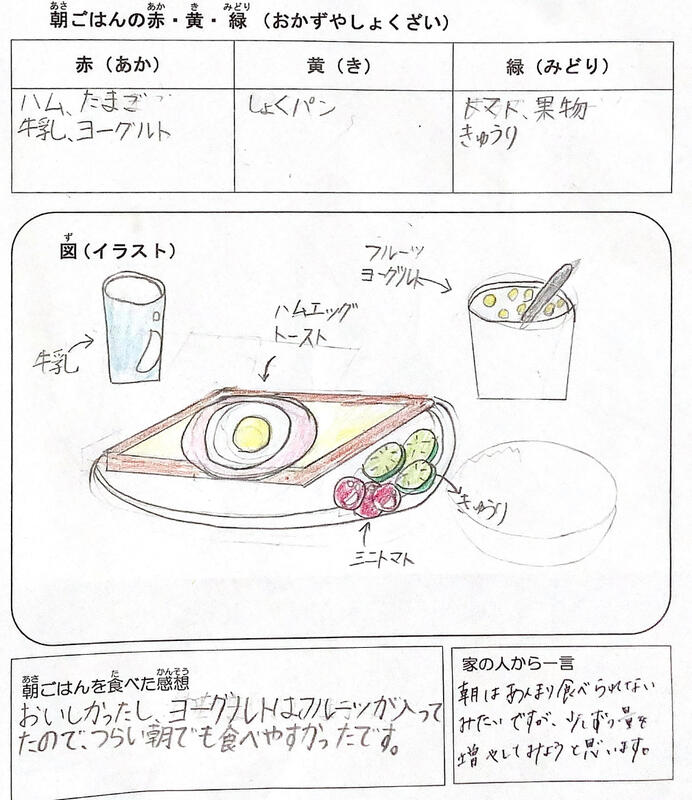 朝ごはんの赤・黄・緑（おかずやしょくざい）
赤（あか）
黄（き）
緑（みどり）
ハム、たまご
牛乳、ヨーグルト
しょくパン
トマト、果物
きゅうり
図（イラスト）
フルーツ
ヨーグルト
ハムエッグ
トースト
牛乳
きゅうり
ミニトマト
朝ごはんを食べた感想
おいしかったし、ヨーグルトはフルーツが入って
たので、つらい朝でも食べやすかったです。
家の人から一言
朝はあんまり食べられない
みたいですが、少しずつ量を
増やしてみようと思います。